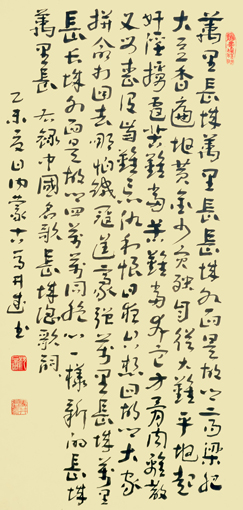 萬里長城萬里長長城外面是故鄉高粱肥
大豆香遍地黃金少災殃自從大難平地起
奸淫擄掠苦難當苦難當奔它方骨肉離散
父母喪沒齒難忘仇和恨日夜只想回故鄉大家
拼命打回去那怕倭寇逞豪強萬里長城萬里
長長城外面是故鄉四萬萬同胞心一樣新的長城
萬里長 右錄中國名歌長城謠歌詞
乙未夏日內蒙古馬井書